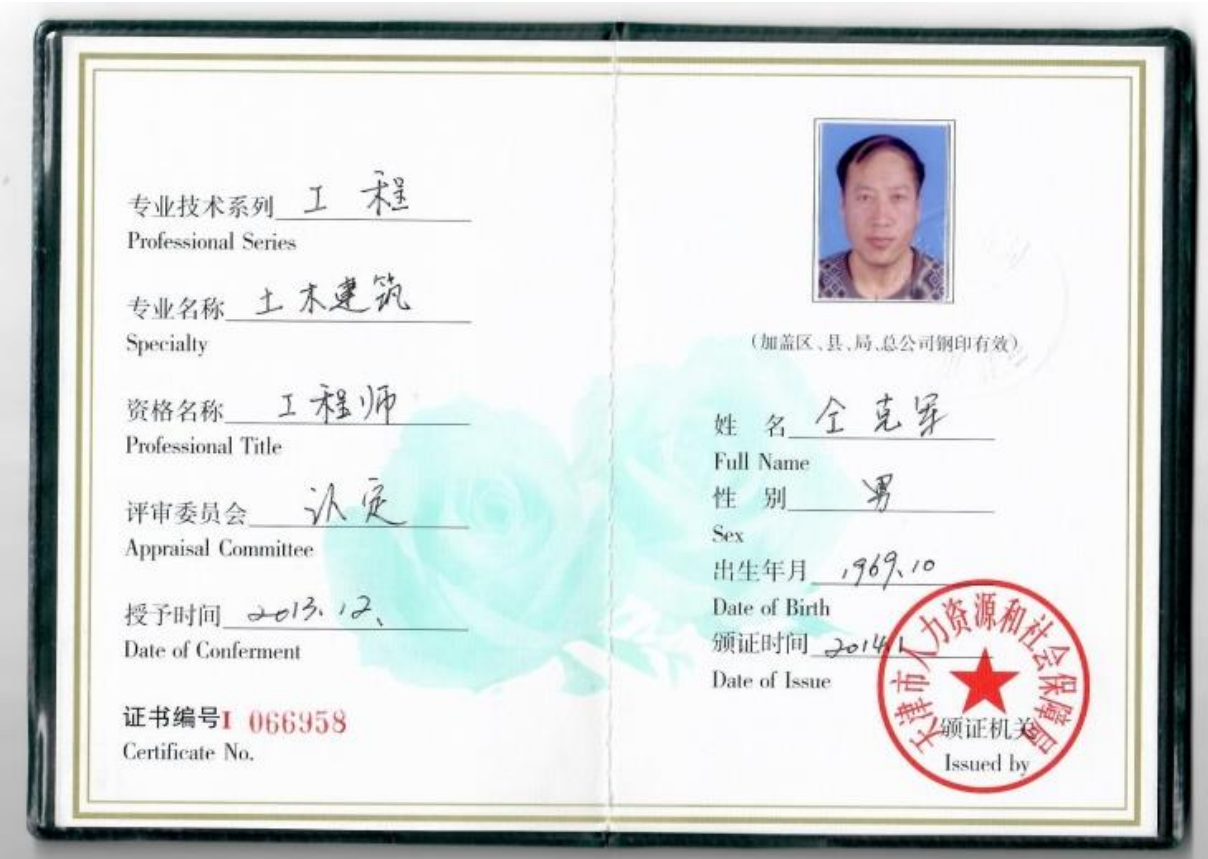 专业技术系列 工程
Professional Series
专业名称 土木建筑
Specialty
资格名称 工程师
Professional Title
评审委员会 认定
Appraisal Committee
授予时间 2013.12.
Date of Conferment
证书编号I 066958
Certificate No.
(加盖区、县、局、总公司钢印有效)
姓 名 仝克军
Full Name
性 别 男
Sex
出生年月 1969.10
Date of Birth
颁证时间 2014.1
Date of Issue
天津市人力资源和社会保障局
颁证机关
Issued by